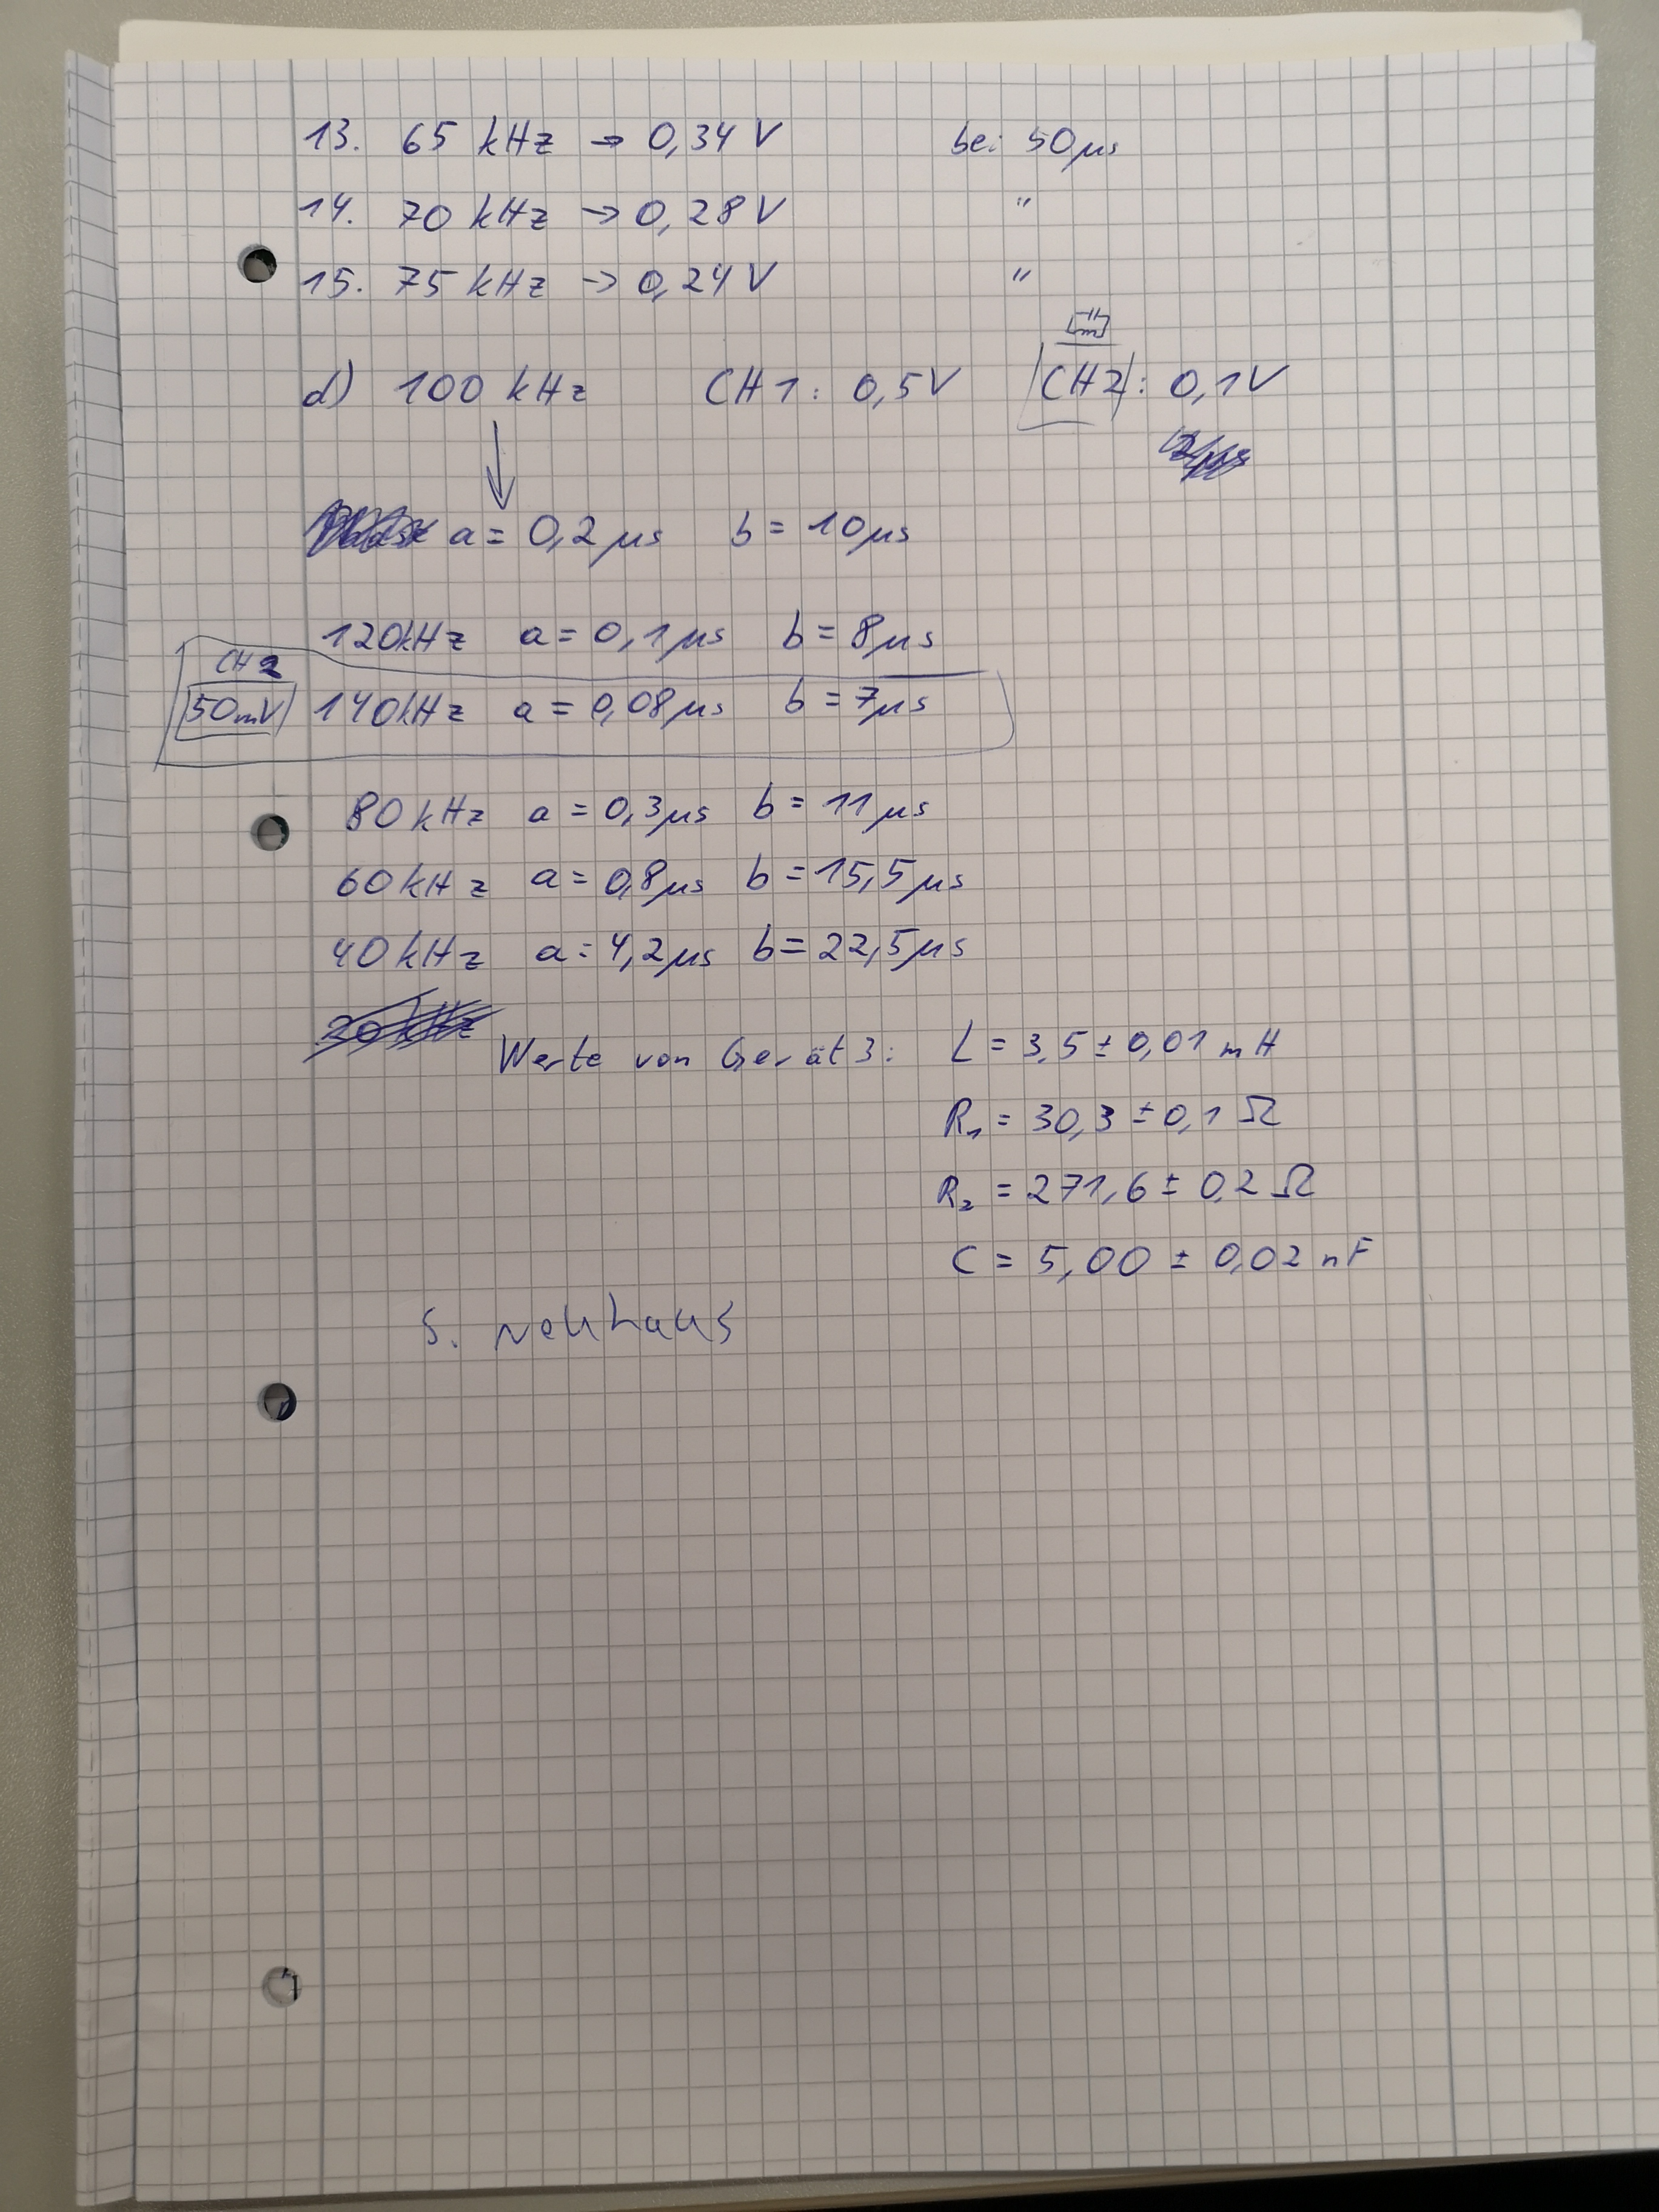 13. 65 kHz → 0,34 V bei 50 µs
14. 70 kHz → 0,28 V "
15. 75 kHz → 0,24 V "
d) 100 kHz CH1: 0,5V CH2: 0,1V
a = 0,2 µs b = 10 µs
120kHz a = 0,1 µs b = 8 µs
CH2
50mV 140kHz a = 0,08 µs b = 7 µs
80 kHz a = 0,3 µs b = 11 µs
60 kHz a = 0,8 µs b = 15,5 µs
40 kHz a = 4,2 µs b = 22,5 µs
Werte von Gerät 3: L = 3,5 ± 0,01 mH
R₁ = 30,3 ± 0,1 Ω
R₂ = 271,6 ± 0,2 Ω
C = 5,00 ± 0,02 nF
S. Neuhaus